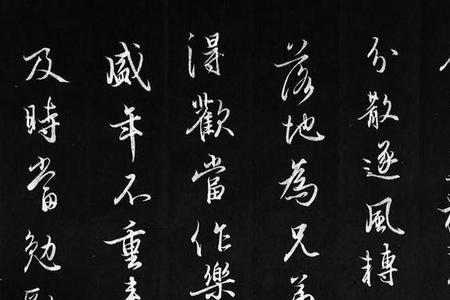 分散逐風轉
落地為兄
得歡當作樂
盛年不重
及時當勉